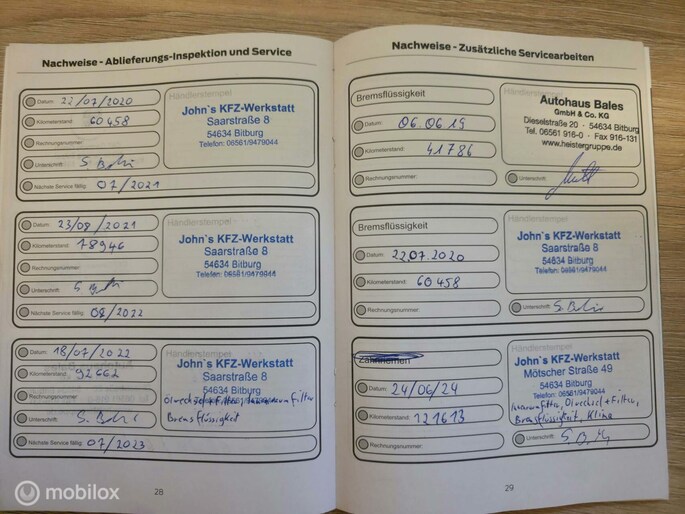 Nachweise - Ablieferungs-Inspektion und Service
Händlerstempel
Datum: 22/07/2020
Kilometerstand: 60 458
Rechnungsnummer:
Unterschrift:
Nächste Service fällig: 07/2021
John`s KFZ-Werkstatt
Saarstraße 8
54634 Bitburg
Telefon: 06561/9479044
Händlerstempel
Datum: 23/08/2021
Kilometerstand: 78946
Rechnungsnummer:
Unterschrift:
Nächste Service fällig: 08/2022
John`s KFZ-Werkstatt
Saarstraße 8
54634 Bitburg
Telefon: 06561/9479044
Händlerstempel
Datum: 18/07/2022
Kilometerstand: 92662
Rechnungsnummer:
Unterschrift:
Nächste Service fällig: 07/2023
John`s KFZ-Werkstatt
Saarstraße 8
54634 Bitburg
Telefon: 06561/9479044
Ölwechsel+Filter, Innenraumfilter
Bremsflüssigkeit
28
Nachweise - Zusätzliche Servicearbeiten
Bremsflüssigkeit
Datum: 06.06.19
Kilometerstand: 41786
Rechnungsnummer:
Autohaus Bales
GmbH & Co. KG
Dieselstraße 20 · 54634 Bitburg
Tel. 06561 916-0 · Fax 916-131
www.heistergruppe.de
Unterschrift:
Bremsflüssigkeit
Datum: 22.07.2020
Kilometerstand: 60458
Rechnungsnummer:
John`s KFZ-Werkstatt
Saarstraße 8
54634 Bitburg
Telefon: 06561/9479044
Unterschrift:
Zahnriemen
Datum: 24/06/24
Kilometerstand: 121613
Rechnungsnummer:
Händlerstempel
John`s KFZ-Werkstatt
Mötscher Straße 49
54634 Bitburg
Telefon: 06561/9479044
Innenraumfilter, Ölwechsel+Filter,
Bremsflüssigkeit, Klima
Unterschrift:
29
mobilox